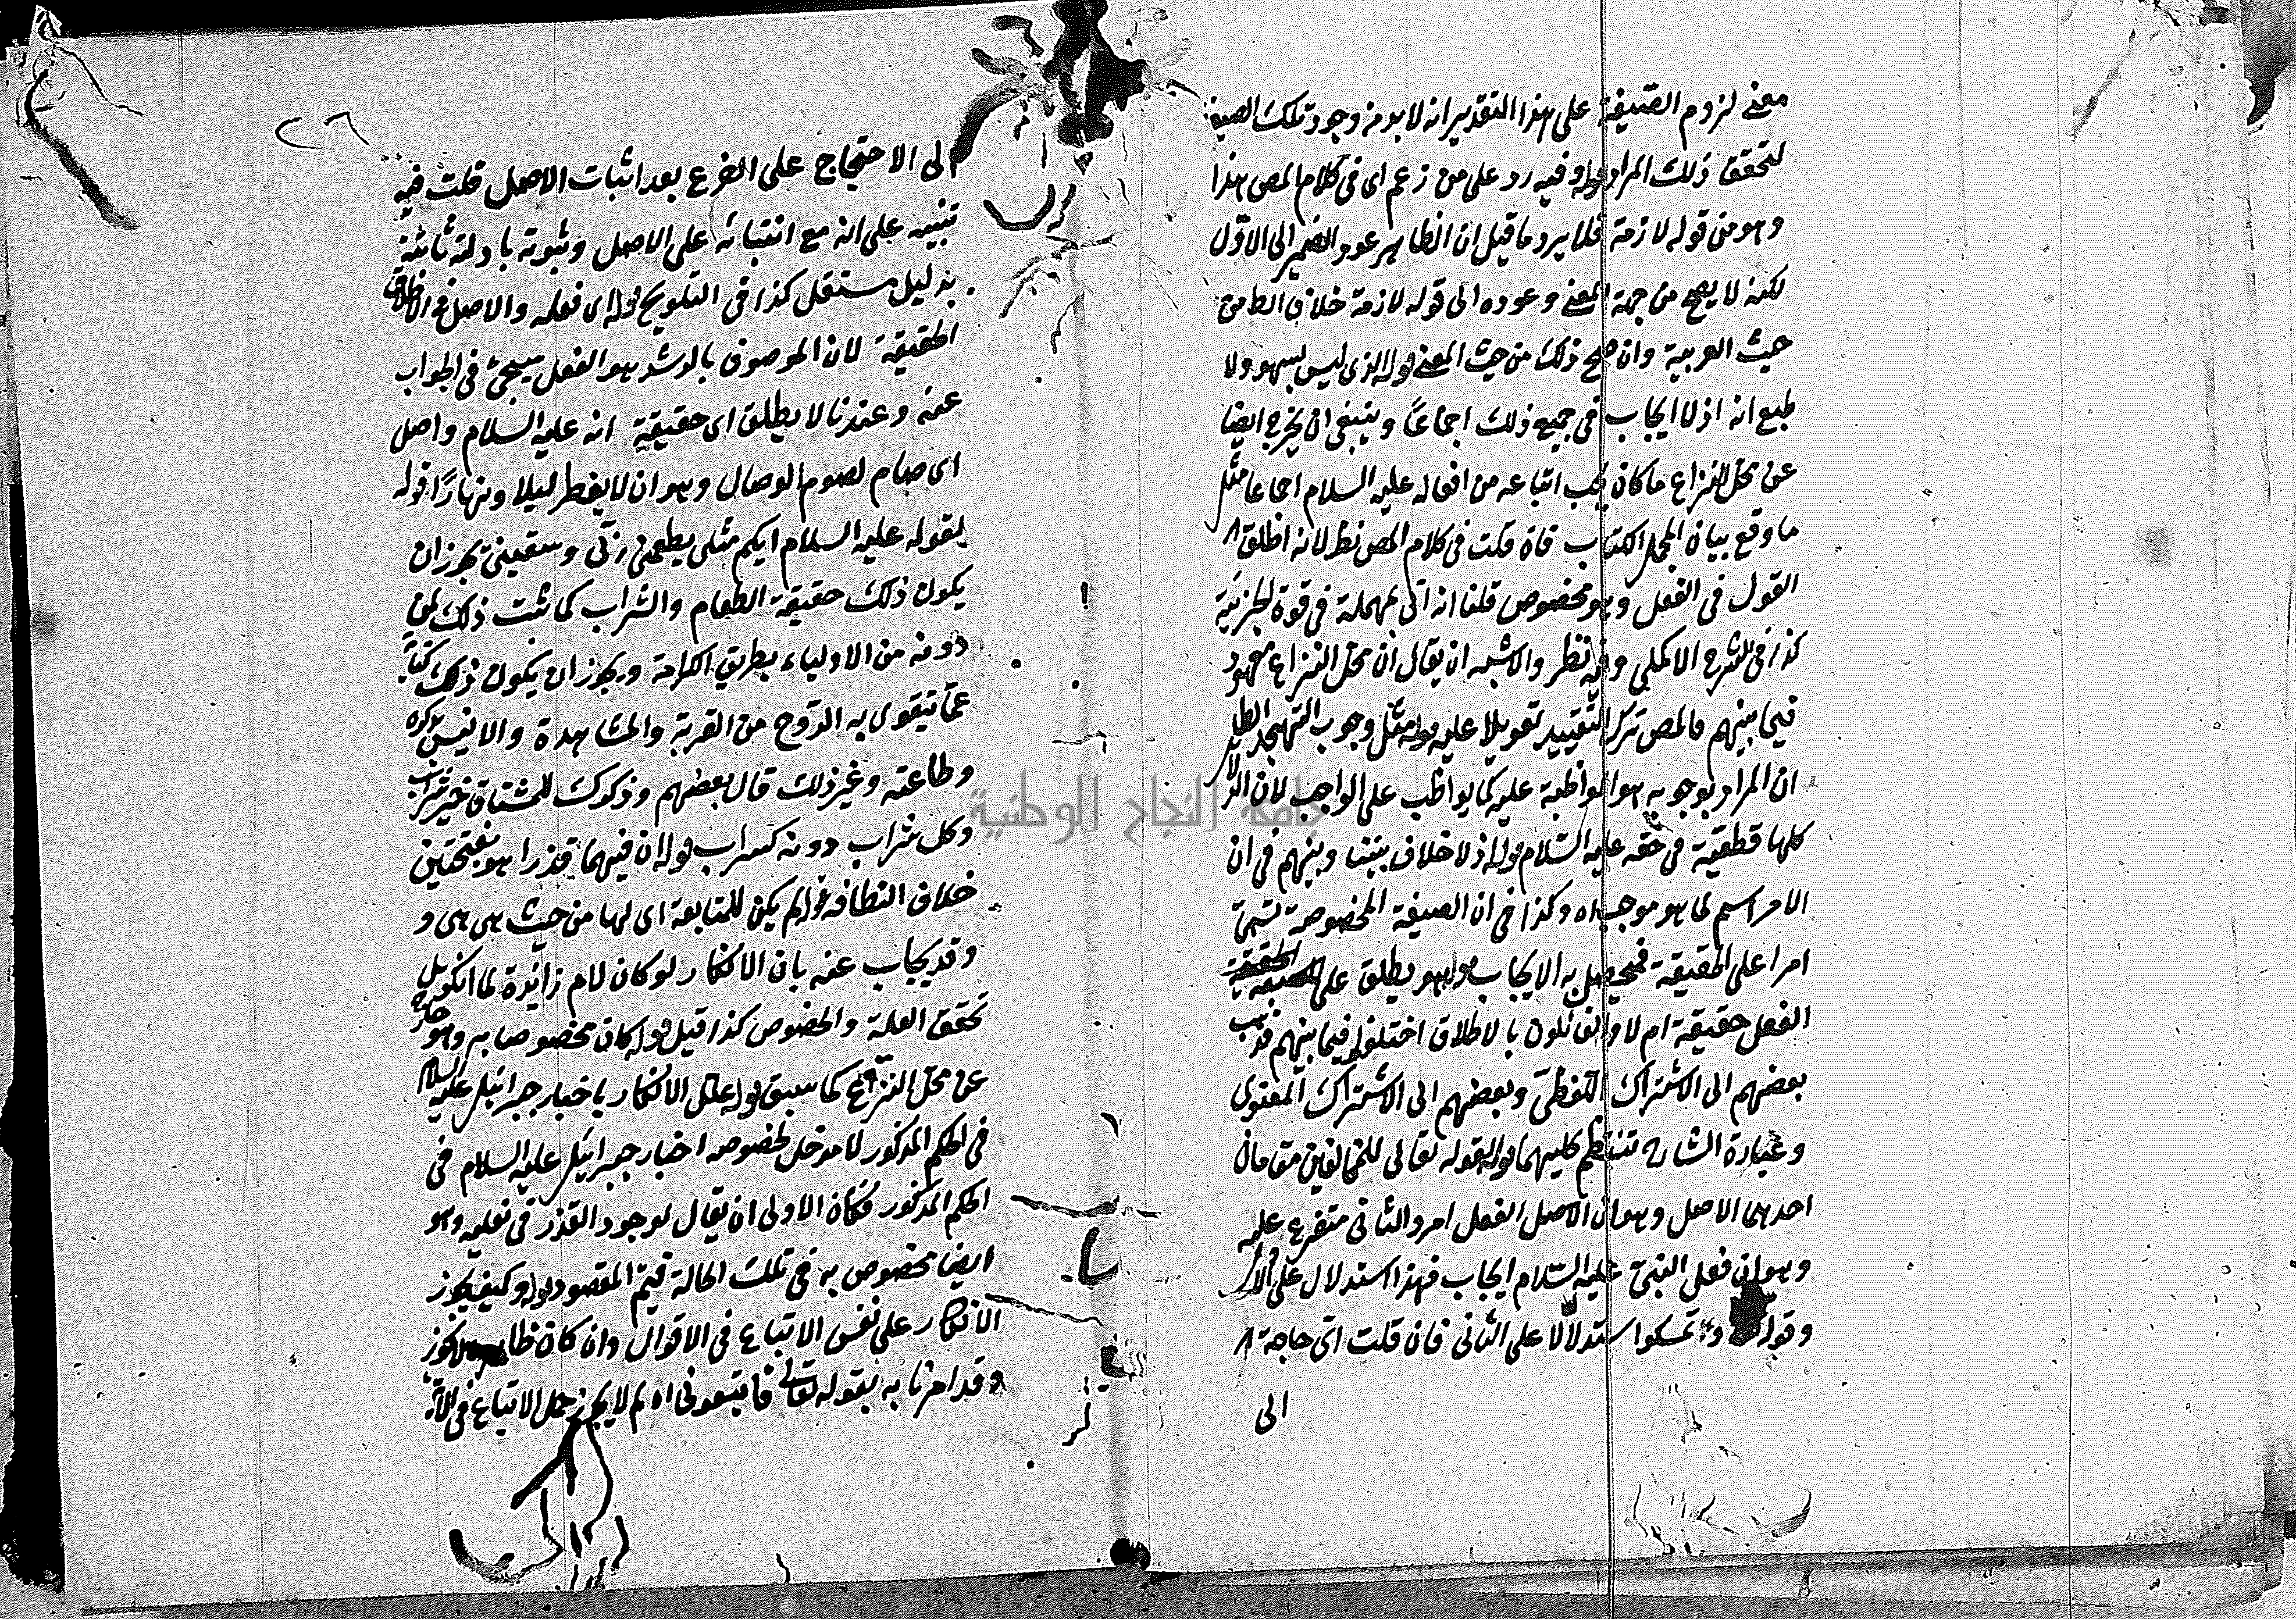 معنى لزوم الصيغة على هذا التقدير انه لا بد من وجود تلك الصيغة
لتحقق ذلك المراد قوله وفيه رد على من زعم اى فى كلام المص هذا
وهو من قوله لازمة فلا يرد ما قيل ان الظاهر عود الضمير الى الاول
لكنه لا يصح من جهة المعنى وعوده الى قوله لازمة خلاف الظ من
حيث العربية وان صح ذلك من حيث المعنى قوله الذى ليس بسهو ولا
طبع انه اذ لا ايجاب فى جميع ذلك اجماعا وينبغى ان يخرج ايضا
عن محل النزاع ما كان يجب اتباعه من افعاله عليه السلام اجماعا مثل
ما وقع بيان المجمل الكتاب فان قلت فى كلام المص نظر لانه اطلق
القول فى الفعل وهو مخصوص قلنا انه اتى بمهملة فى قوة الجزئية
كذا فى الشرح الاكملى وفيه نظر والاشبه ان يقال ان محل النزاع معهود
فيما بينهم فالمص ترك التقييد تعويلا عليه قوله مثل وجوب التهجد الظاهر
ان المراد بوجوبه هو المواظبة عليه كما يواظب على الواجب لان
كلها قطعية فى حقه عليه السلام قوله اذ لا خلاف بيننا وبينهم فى ان
الامر اسم لما هو موجب اه وكذا فى ان الصيغة المخصوصة تسمى
امرا على الحقيقة فيحصل به الايجاب قوله هو يطلق على
الفعل حقيقة ام لا والقائلون بالاطلاق اختلفوا فيما بينهم فذهب
بعضهم الى الاشتراك اللفظى وبعضهم الى الاشتراك المعنوى
وعبارة الشارح تنتظم كليهما قوله لقوله تعالى للمخالفين مقامان
احدهما الاصل وهو ان الاصل الفعل امر والثانى متفرع عليه
وهو ان فعل النبى عليه السلام ايجاب فهذا استدلال على الاول
وقوله وتمسكوا استدلالا على الثانى فان قلت اى حاجة
الى
٢٦
الى الاحتجاج على الفرع بعد اثبات الاصل قلت فيه
تنبيه على انه مع ابتنائه على الاصل وثبوته بادلته ثابتة
بدليل مستقل كذا فى التلويح قوله اى فعله والاصل فى الاطلاق
الحقيقة لان الموصوف بالرشد هو الفعل سيجئ فى الجواب
عنه وعندنا لا يطلق اى حقيقة انه عليه السلام واصل
اى صام لصوم الوصال وهو ان لا يفطر ليلا ونهارا قوله
لقوله عليه السلام ايكم مثلى يطعمنى ربى ويسقينى يجوز ان
يكون ذلك حقيقة الطعام والشراب كما ثبت ذلك لمن
دونه من الاولياء بطريق الكرامة ويجوز ان يكون ذلك كناية
عما يتقوى به الروح من القربة والمشاهدة والانيس بذكره
وطاعته وغير ذلك قال بعضهم وذكرك للمشتاق خير شراب
وكل شراب دونه كسراب قوله ان فيهما قذرا هو بفتحتين
خلاف النظافة قوله لم يكن للمتابعة اى لها من حيث هى هى و
وقد يجاب عنه بان الانكار لو كان لام زائدة لما انكر بل
تحقق العلة والخصوص كذا قيل قوله كان مخصوصا به وهو خارج
عن محل النزاع كما سبق قوله علل الانكار باخبار جبرائيل عليه السلام
فى الحكم المذكور لا مدخل لخصوصه اخبار جبرائيل عليه السلام فى
الحكم المذكور فكان الاولى ان يقال لوجود القذر فى نعليه وهو
ايضا مخصوص به فى تلك الحالة فيتم المقصود قوله وكيف يجوز
الانكار على نفس الاتباع فى الاقوال وان كان
وقد امرنا به بقوله تعالى فاتبعونى اه لم لا يجوز حمل الاتباع فى